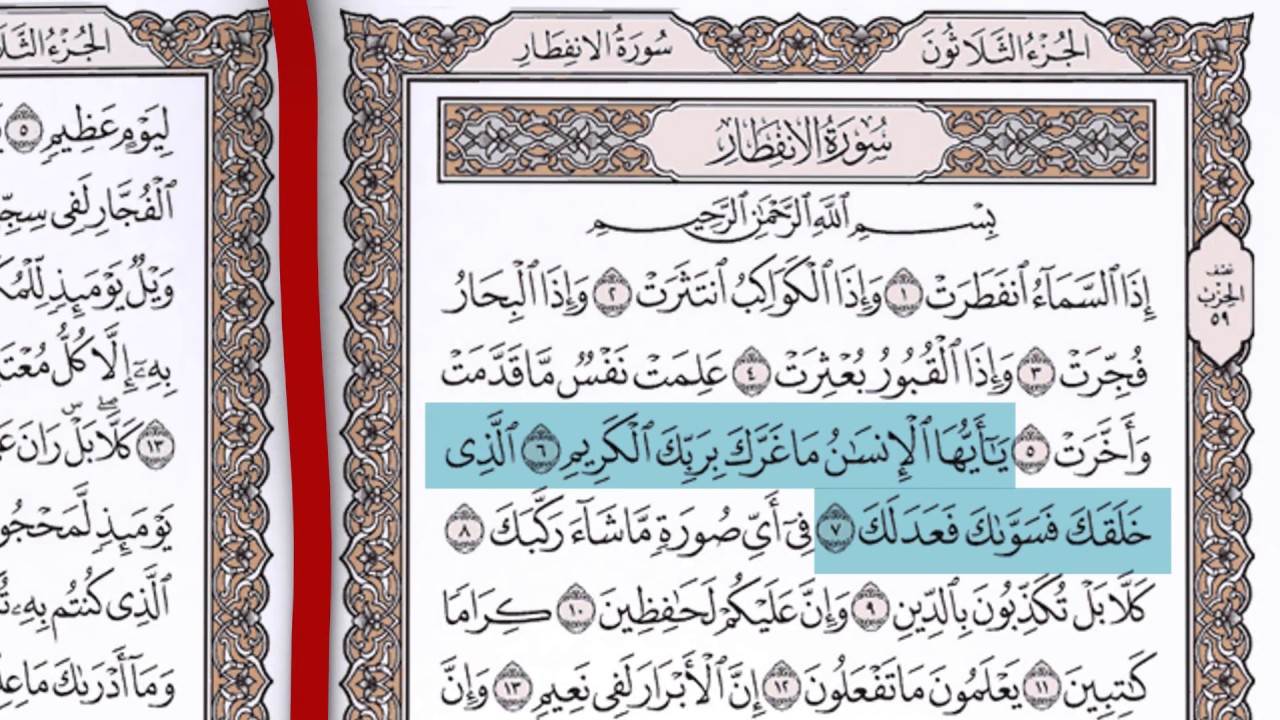 الجُزْءُ الثَّلَاثُونَ
سُورَةُ الانفِطَارِ
سُورَةُ الانفِطَارِ
بِسْمِ ٱللَّهِ ٱلرَّحْمَٰنِ ٱلرَّحِيمِ
إِذَا ٱلسَّمَآءُ ٱنفَطَرَتْ ١ وَإِذَا ٱلْكَوَاكِبُ ٱنتَثَرَتْ ٢ وَإِذَا ٱلْبِحَارُ
فُجِّرَتْ ٣ وَإِذَا ٱلْقُبُورُ بُعْثِرَتْ ٤ عَلِمَتْ نَفْسٌ مَّا قَدَّمَتْ
وَأَخَّرَتْ ٥ يَٰٓأَيُّهَا ٱلْإِنسَٰنُ مَا غَرَّكَ بِرَبِّكَ ٱلْكَرِيمِ ٦ ٱلَّذِى
خَلَقَكَ فَسَوَّىٰكَ فَعَدَلَكَ ٧ فِىٓ أَىِّ صُورَةٍ مَّا شَآءَ رَكَّبَكَ ٨
كَلَّا بَلْ تُكَذِّبُونَ بِٱلدِّينِ ٩ وَإِنَّ عَلَيْكُمْ لَحَٰفِظِينَ ١٠ كِرَامًا
كَٰتِبِينَ ١١ يَعْلَمُونَ مَا تَفْعَلُونَ ١٢ إِنَّ ٱلْأَبْرَارَ لَفِى نَعِيمٍ ١٣ وَإِنَّ
نصف
الحِزْب
٥٩
الجُزْءُ
لِيَوْمٍ عَظِيمٍ ٥
ٱلْفُجَّارِ لَفِى
وَيْلٌ يَوْمَئِذٍ
بِهِۦٓ إِلَّا كُلُّ
١٣ كَلَّا بَلْ رَانَ
يَوْمَئِذٍ
ٱلَّذِى كُنتُم بِهِۦ
وَمَآ أَدْرَىٰكَ مَا